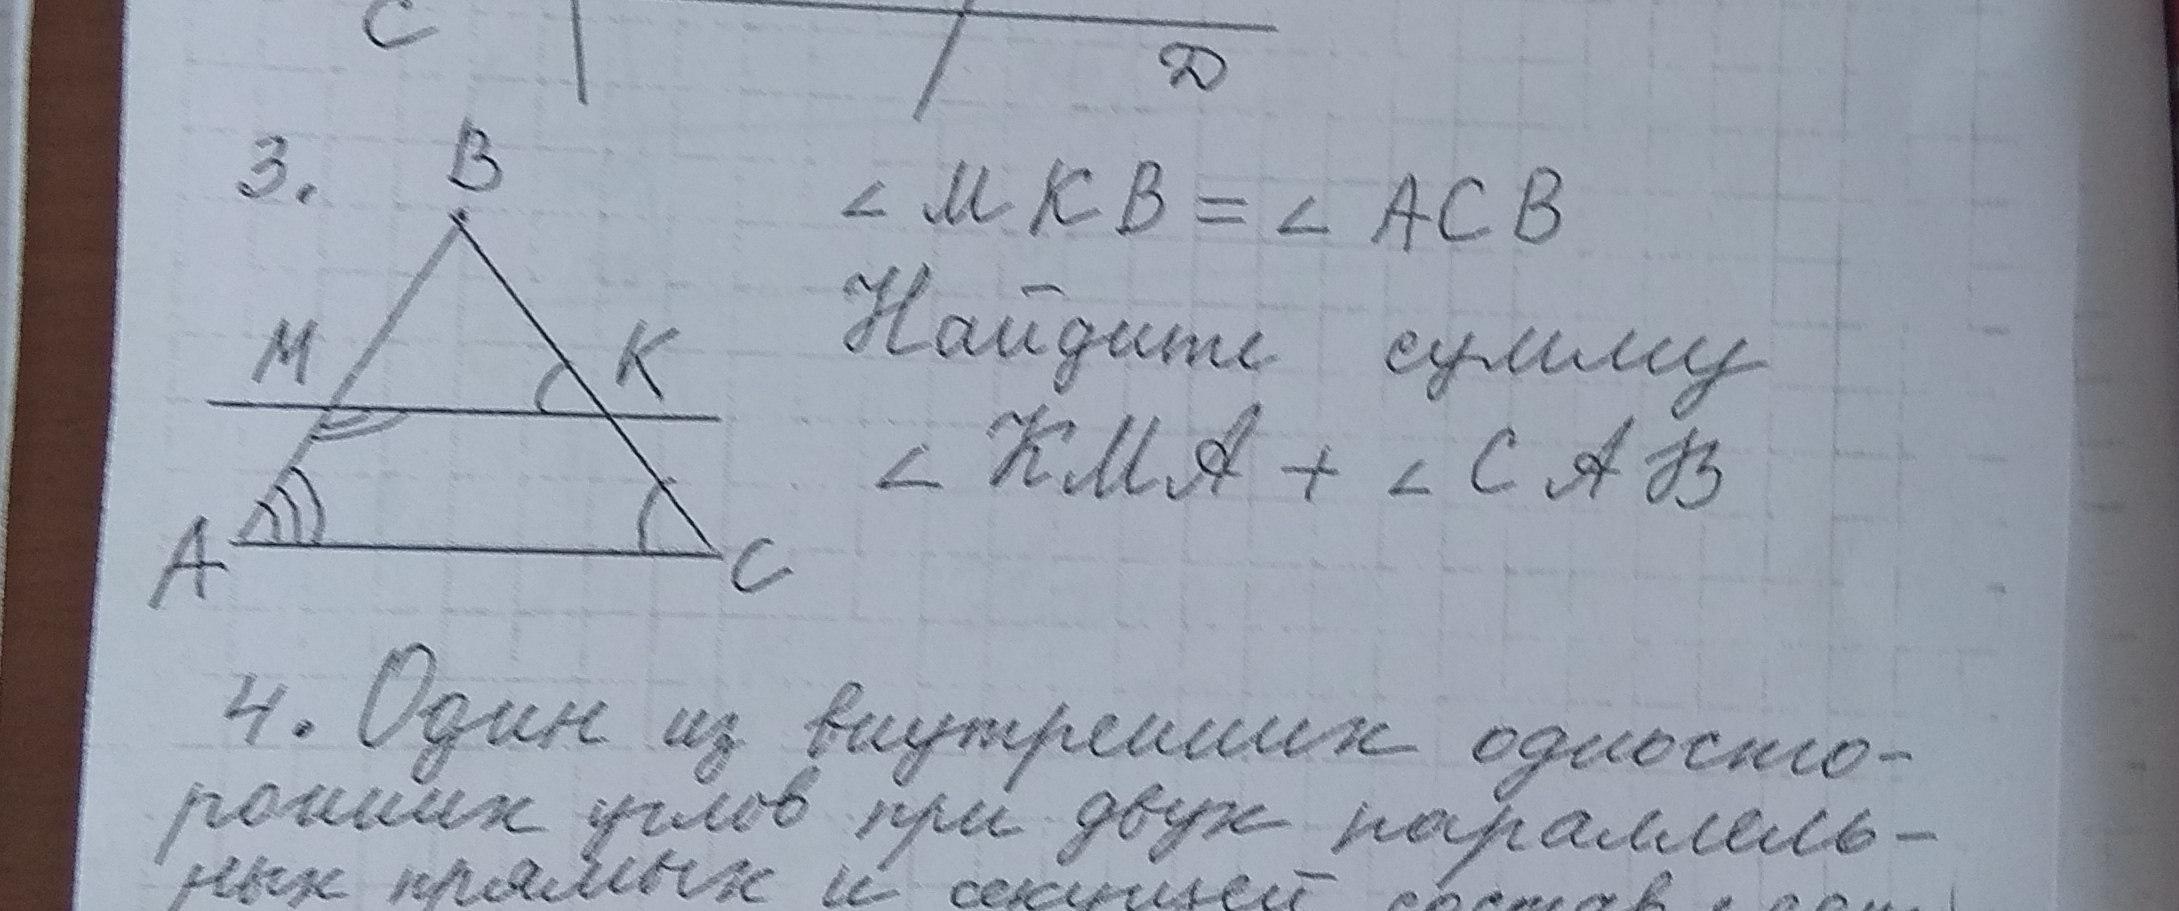 C
D
3.
B
∠ MKB = ∠ ACB
Найдите сумму
M
K
∠ KMA + ∠ CAB
A
C
4. Один из внутренних односто-
ронних углов при двух параллель-
ных прямых и секущей